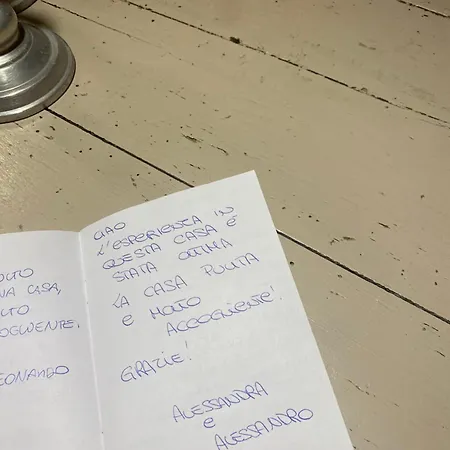 OLTO
NA CASA,
LTO
OGLIENTE.
LEONARDO
CIAO
L'ESPERIENZA IN
QUESTA CASA E'
STATA OTTIMA
LA CASA PULITA
E MOLTO
ACCOGLIENTE!
GRAZIE!
ALESSANDRA
e
ALESSANDRO